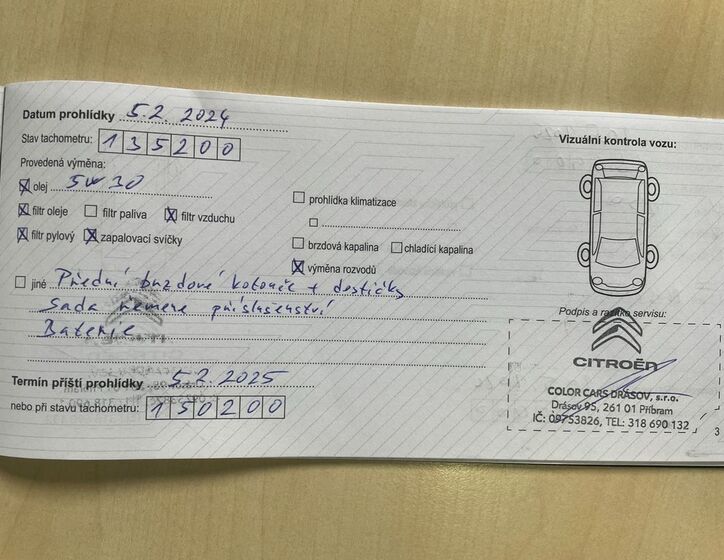 Datum prohlídky 5.2. 2024
Stav tachometru: 135200
Provedená výměna:
olej 5W30
filtr oleje filtr paliva filtr vzduchu
filtr pylový zapalovací svíčky
prohlídka klimatizace
brzdová kapalina chladící kapalina
výměna rozvodů
jiné Přední brzdové kotouče + destičky
Sada řemene příslušenství
Baterie
Termín příští prohlídky 5.2. 2025
nebo při stavu tachometru: 150200
Vizuální kontrola vozu:
Podpis a razítko servisu:
CITROËN
COLOR CARS DRÁSOV, s.r.o.
Drásov 95, 261 01 Příbram
IČ: 09753826, TEL: 318 690 132
3